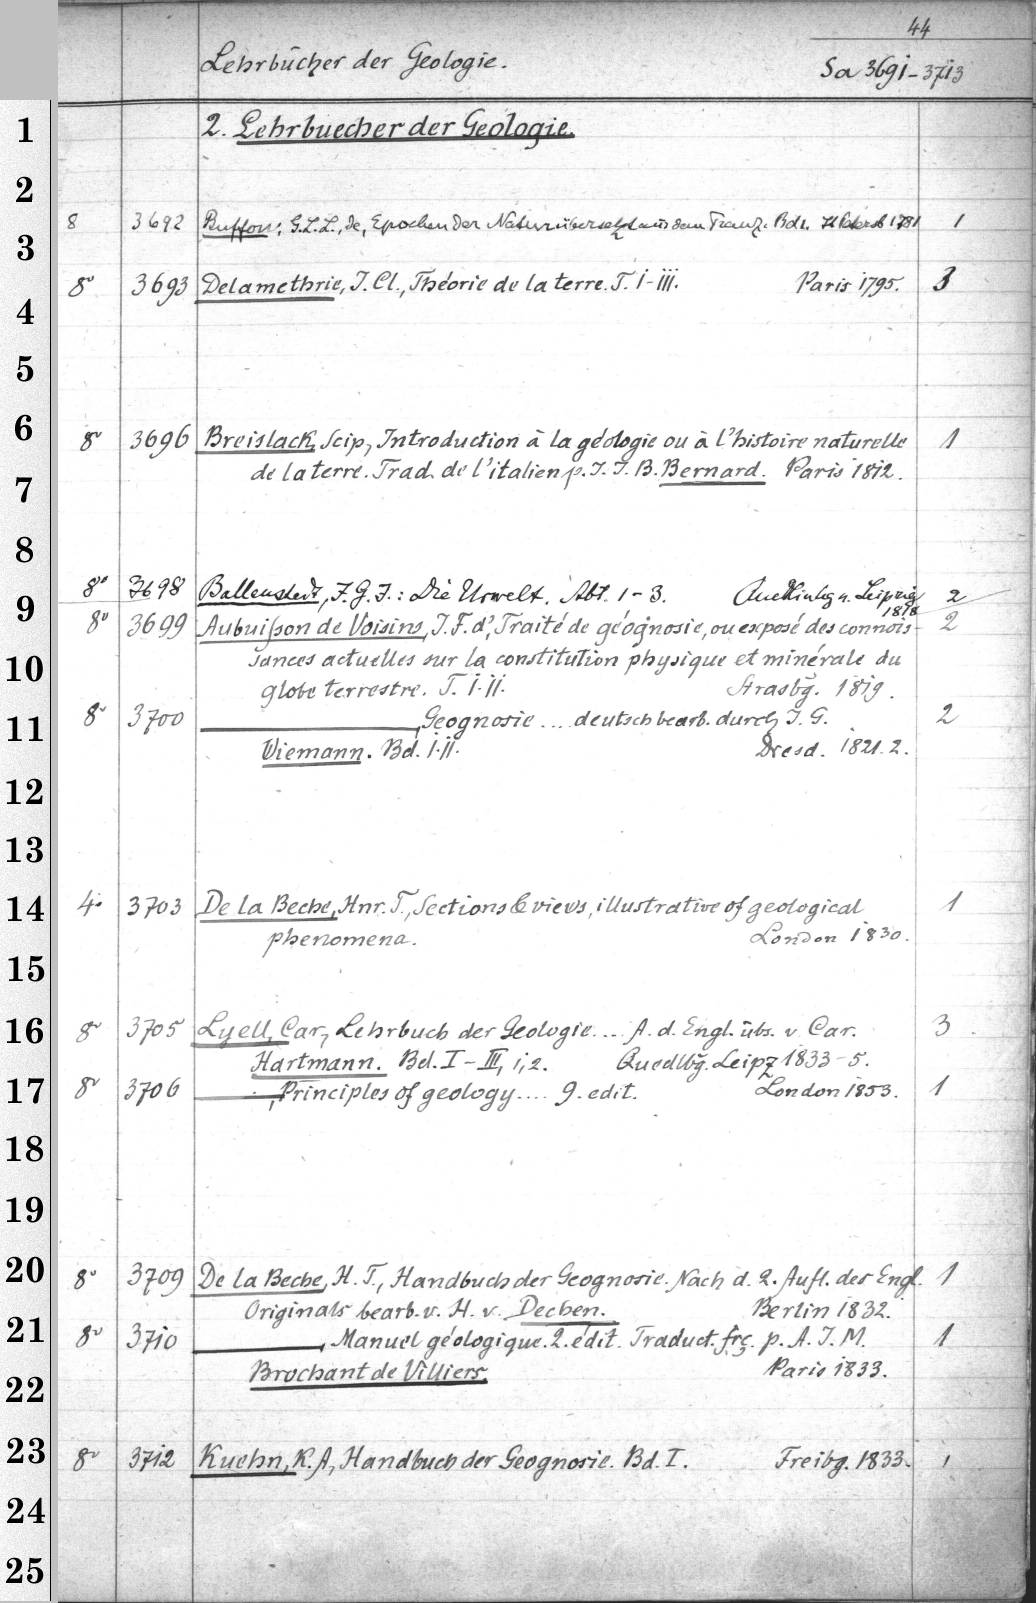 44
Lehrbücher der Geologie.
Sa 3691-3713
1
2. Lehrbuecher der Geologie.
2
8 3692 Buffon, G.L.L., de, Epochen der Natur übersetzt aus dem Franz. Bd 1. 1781 1
3
8° 3693 Delamethrie, J. Cl., Théorie de la terre. T. I-III. Paris 1795. 3
4
5
6
8° 3696 Breislack, Scip, Introduction à la géologie ou à l'histoire naturelle 1
de la terre. Trad. de l'italien p. J. J. B. Bernard. Paris 1812.
7
8
8° 3698 Ballenstedt, J. G. J.: Die Urwelt. Abt. 1-3. Quedlinbg u. Leipzig 2
1818
9
8° 3699 Aubuisson de Voisins, J. F. d', Traité de géognosie, ou exposé des connois- 2
sances actuelles sur la constitution physique et minérale du
10
globe terrestre. T. I.II. Strasbg. 1819.
8° 3700 ———, Geognosie ... deutsch bearb. durch J. G. 2
11
Wiemann. Bd. I.II. Dresd. 1821.2.
12
13
14
4° 3703 De la Beche, Hnr. T., Sections & views, illustrative of geological 1
phenomena. London 1830.
15
16
8° 3705 Lyell, Car, Lehrbuch der Geologie.... A. d. Engl. übs. v. Car. 3
Hartmann. Bd. I-III, 1,2. Quedlbg. Leipz 1833-5.
17
8° 3706 ———, Principles of geology.... 9. edit. London 1853. 1
18
19
20
8° 3709 De la Beche, H. T., Handbuch der Geognosie. Nach d. 2. Aufl. des Engl. 1
Originals bearb. v. H. v. Dechen. Berlin 1832.
21
8° 3710 ———, Manuel géologique. 2. édit. Traduct. frç. p. A. J. M. 1
Brochant de Villiers. Paris 1833.
22
23
8° 3712 Kuehn, K. A, Handbuch der Geognosie. Bd. I. Freibg. 1833. 1
24
25